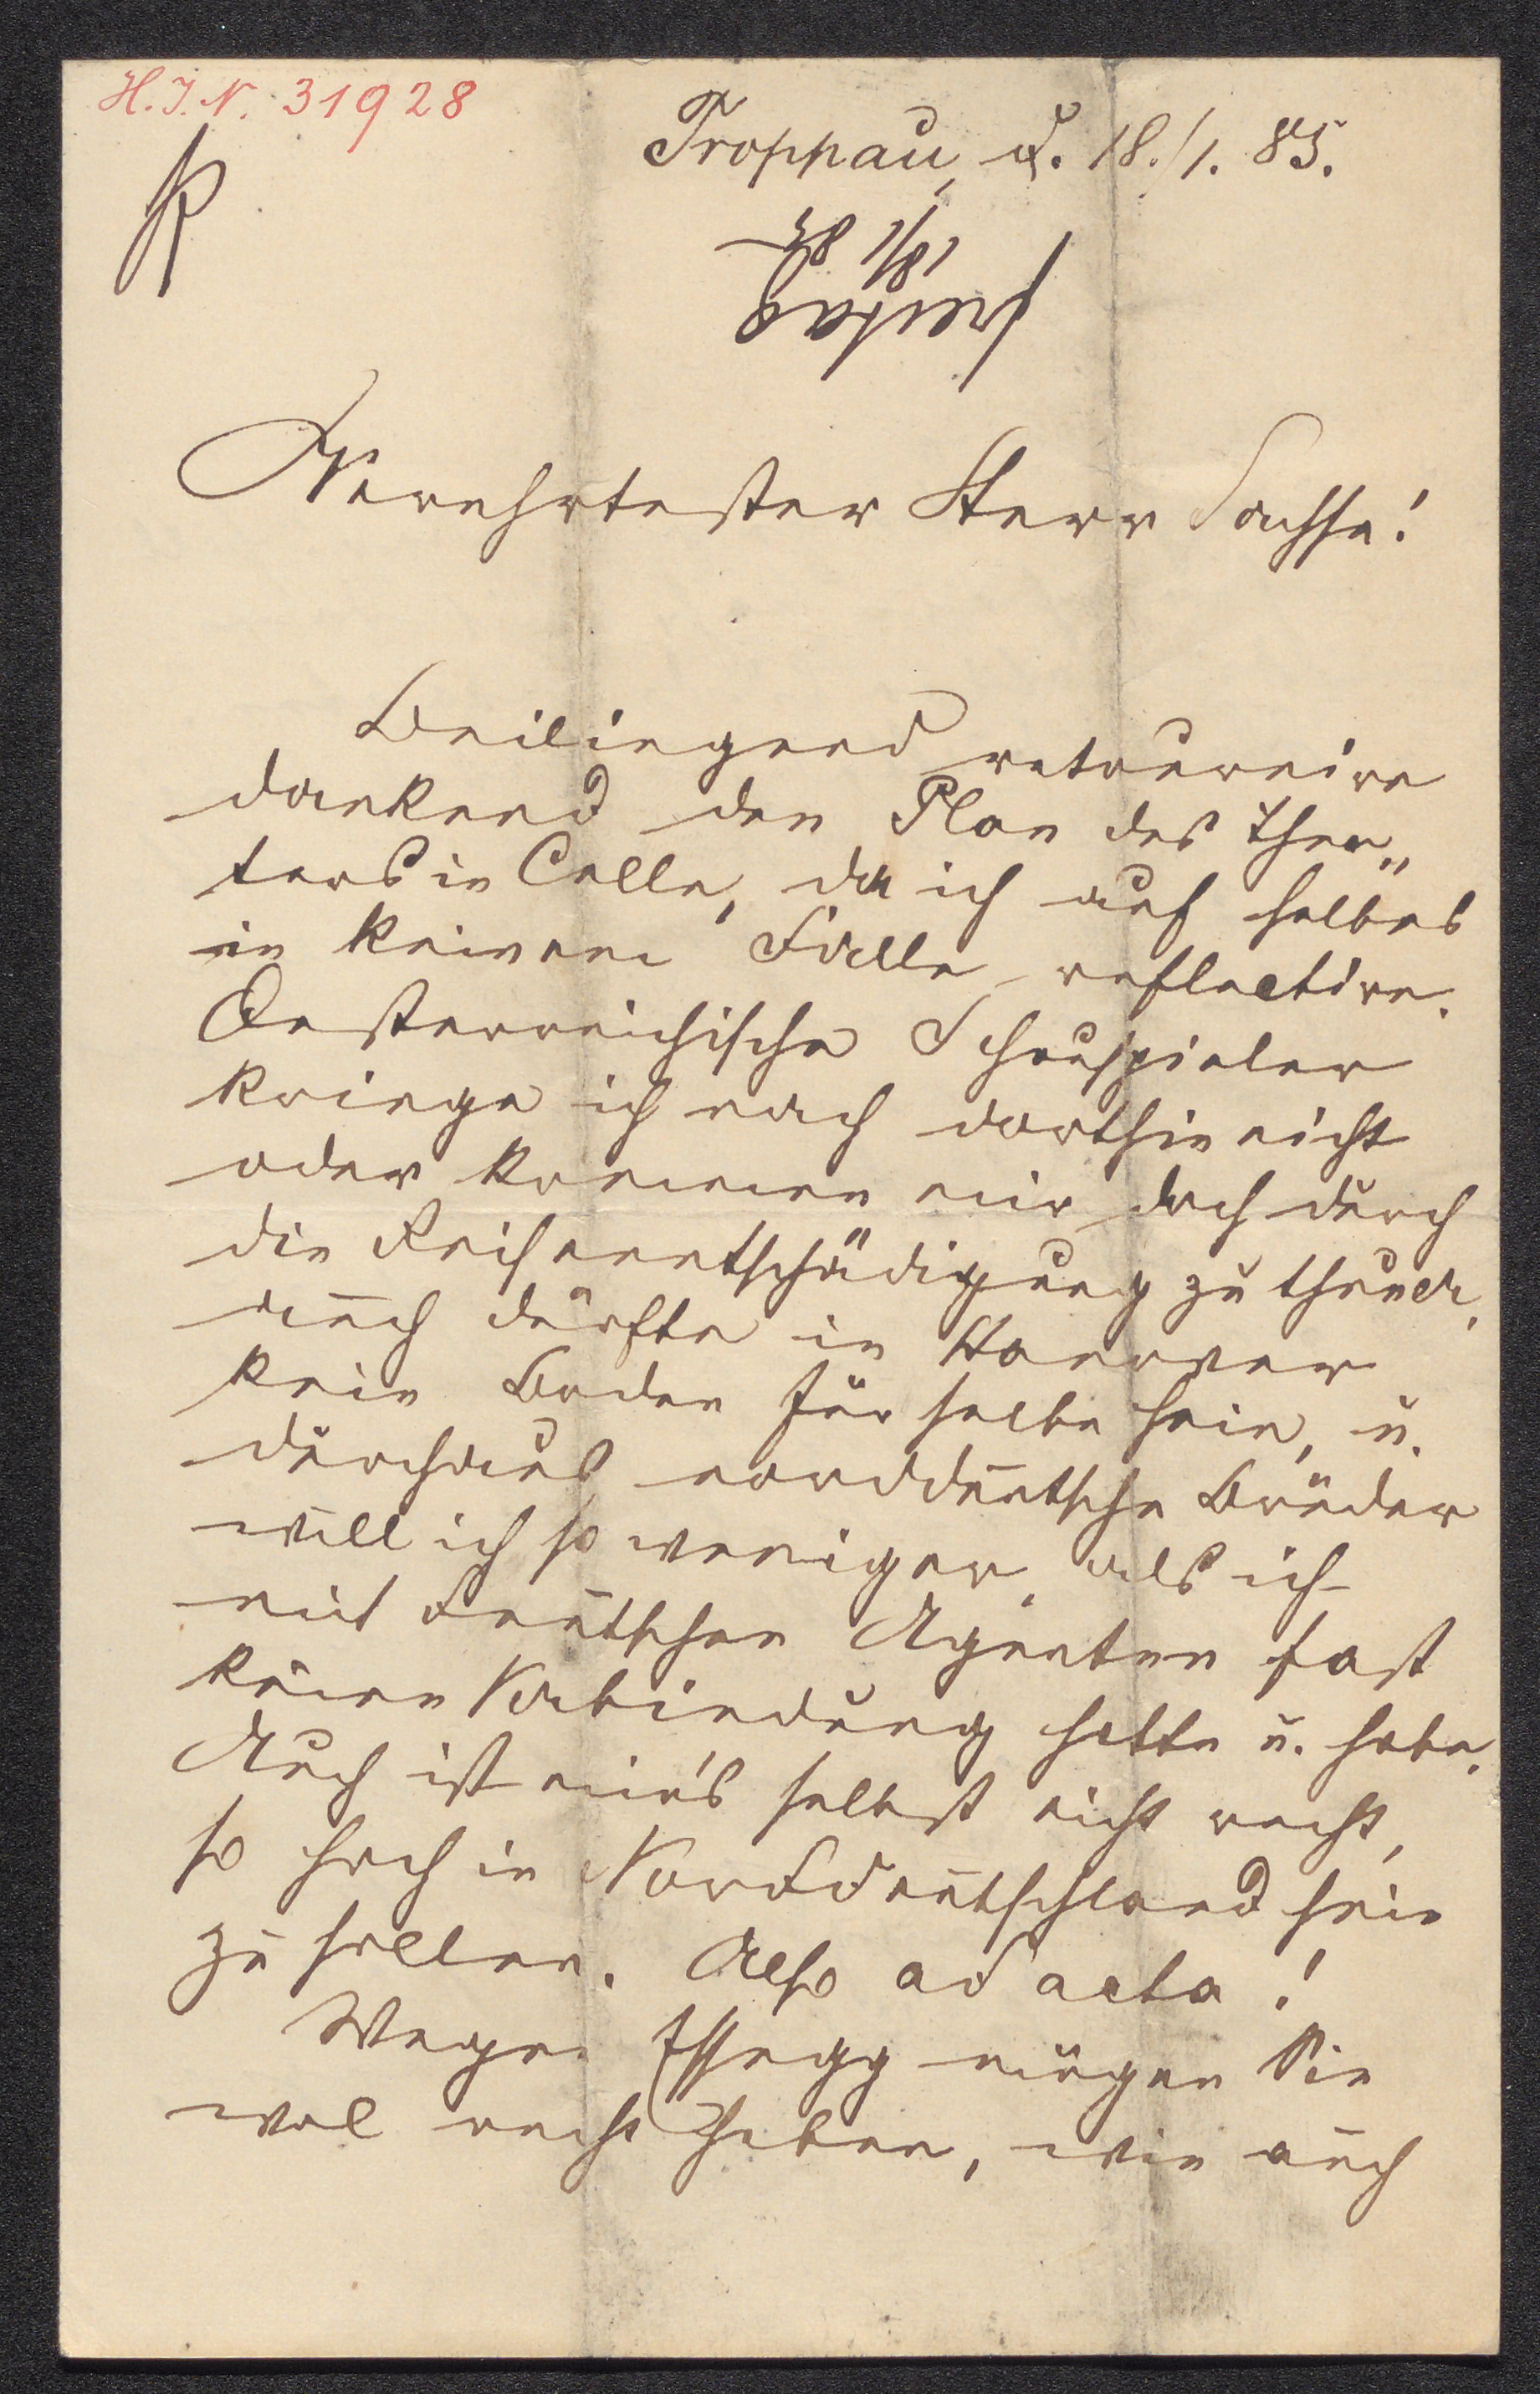 H.I.N. 31928
Troppau, d. 18./1. 85.
R
18/1 85
Freitag
Verehrtester Herr Sachse!
Beiliegend retournire
dankend den Plan des Thea„
ters in Celle, da ich auf selbes
in keinem Falle reflectire.
Oesterreichische Schauspieler
kriege ich nach dorthin nicht
oder kommen mir doch durch
die Reiseentschädigung zu theuer,
auch dürfte in Hannover
kein Boden für selbe sein, u.
durchaus norddeutsche Brüder
will ich so weniger, als ich
mit deutschen Agenten fast
keine Verbindung hatte u. habe.
Auch ist mir's selbst nicht recht,
so hoch in Norddeutschland sein
zu sollen. Also ad acta!
Wegen Essegg mögen Sie
wol recht haben, wie auch